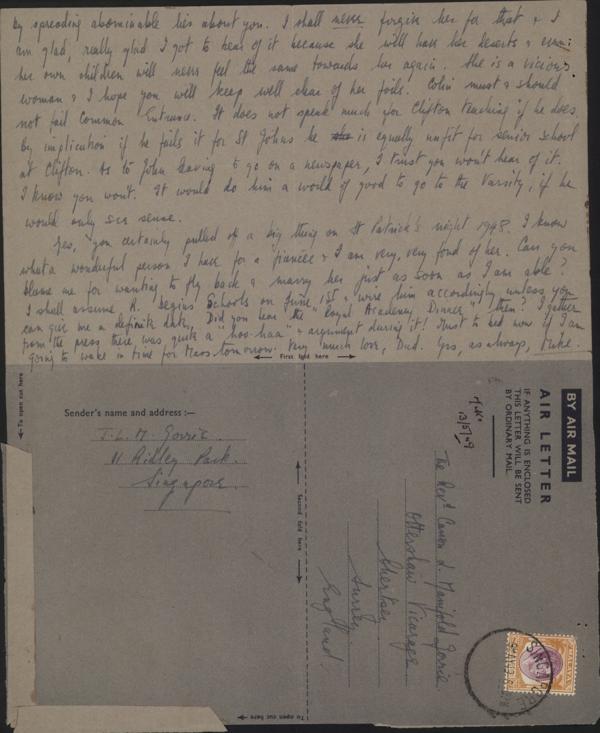 by spreading abominable lies about you. I shall never forgive her for that & I
am glad, really glad I got to hear of it because she will have her deserts &
her own children will never feel the same towards her again. She is a vicious
woman & I hope you will keep well clear of her foils. Colin must & should
not fail Common Entrance. It does not speak much for Clifton teaching if he does.
By implication if he fails it for St Johns he is equally unfit for senior school
at Clifton. As to John having to go on a newspaper, I trust you won't hear of it.
I know you won't. It would do him a world of good to go to the Varsity, if he
would only see sense.
Yes, you certainly pulled of a big thing on St Patrick's night 1948. I know
what a wonderful person I have for a fiancée & I am very, very fond of her. Can you
blame me for wanting to fly back & marry her just as soon as I am able?
I shall assume R. begins Schools on June 1st & wire him accordingly unless you
can give me a definite date. Did you hear the "Royal Academy Dinner" then? I gather
from the press there was quite a "hoo-haa" & argument during it! Must to bed now if I am
going to wake in time for Mass tomorrow. Very much love, Dad. Yrs, as always, Mike.
First fold here
To open cut here
Sender's name and address :—
T.L.M. Gorrie
11 Ridley Park.
Singapore.
Second fold here
BY AIR MAIL
AIR LETTER
IF ANYTHING IS ENCLOSED
THIS LETTER WILL BE SENT
BY ORDINARY MAIL.
13/5/49
The Revd Canon L. Manifold Gorrie
Ottershaw Vicarage
Chertsey
Surrey
England.
SINGAPORE
To open cut here